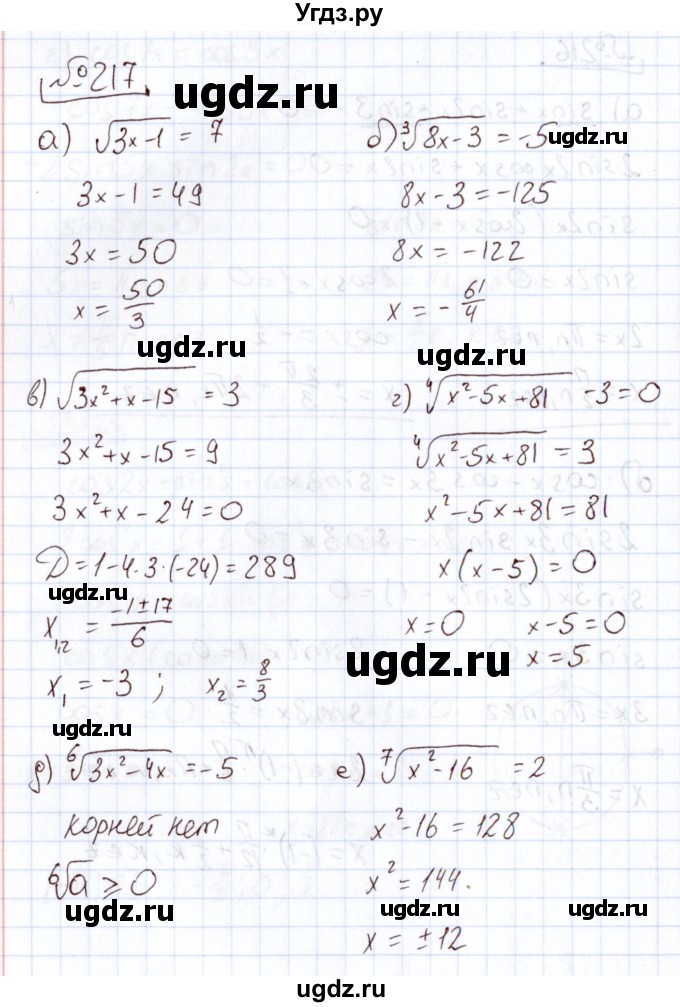 Угдз.ру
№217.
ugdz.ru
а) √(3x-1) = 7
3x-1=49
3x=50
x = 50/3
б) ∛(8x-3) = -5
8x-3=-125
8x=-122
x = -61/4
ugdz.ru
ugdz.ru
ugdz.ru
в) √(3x²+x-15) = 3
3x²+x-15=9
3x²+x-24=0
D=1-4·3·(-24)=289
ugdz.ru
x₁,₂ = (-1±17)/6
x₁=-3; x₂=8/3
г) ⁴√(x²-5x+81) -3=0
⁴√(x²-5x+81) = 3
x²-5x+81=81
x(x-5)=0
x=0 x-5=0
x=5
ugdz.ru
ugdz.ru
д) ⁶√(3x²-4x) = -5
корней нет
⁶√a ⩾ 0
ugdz.ru
е) ⁷√(x²-16) = 2
x²-16=128
x²=144.
x=±12
ugdz.ru
ugdz.ru
ugdz.ru